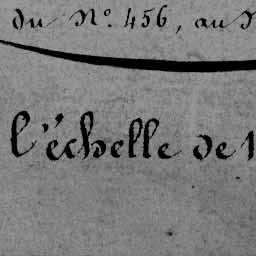 du N.° 456, au N
l'échelle de 1